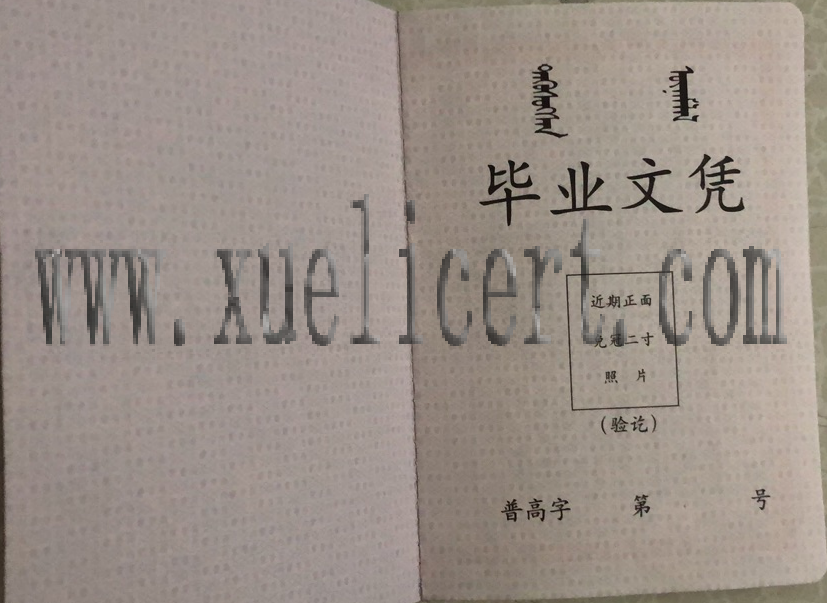 毕业文凭
www.xuelicert.com
近期正面
免冠二寸
照 片
(验讫)
普高字 第 号